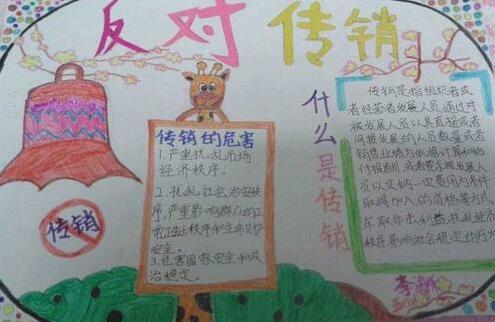 反对传销
传销
传销的危害
1.严重扰乱市场
经济秩序。
2.扰乱社会治安秩
序,严重影响群众的正
常生活秩序和生命财产
安全。
3.危害国家安全和政
治稳定。
什么是传销
传销是指组织者或
者经营者发展人员,通过对
被发展人员以其直接或者
间接发展的人员数量或者
销售业绩为依据计算和给
付报酬,或者要求被发展人
员以交纳一定费用为条件
取得加入的资格等方式
牟取非法利益,扰乱经济
秩序,影响社会稳定的行为
李